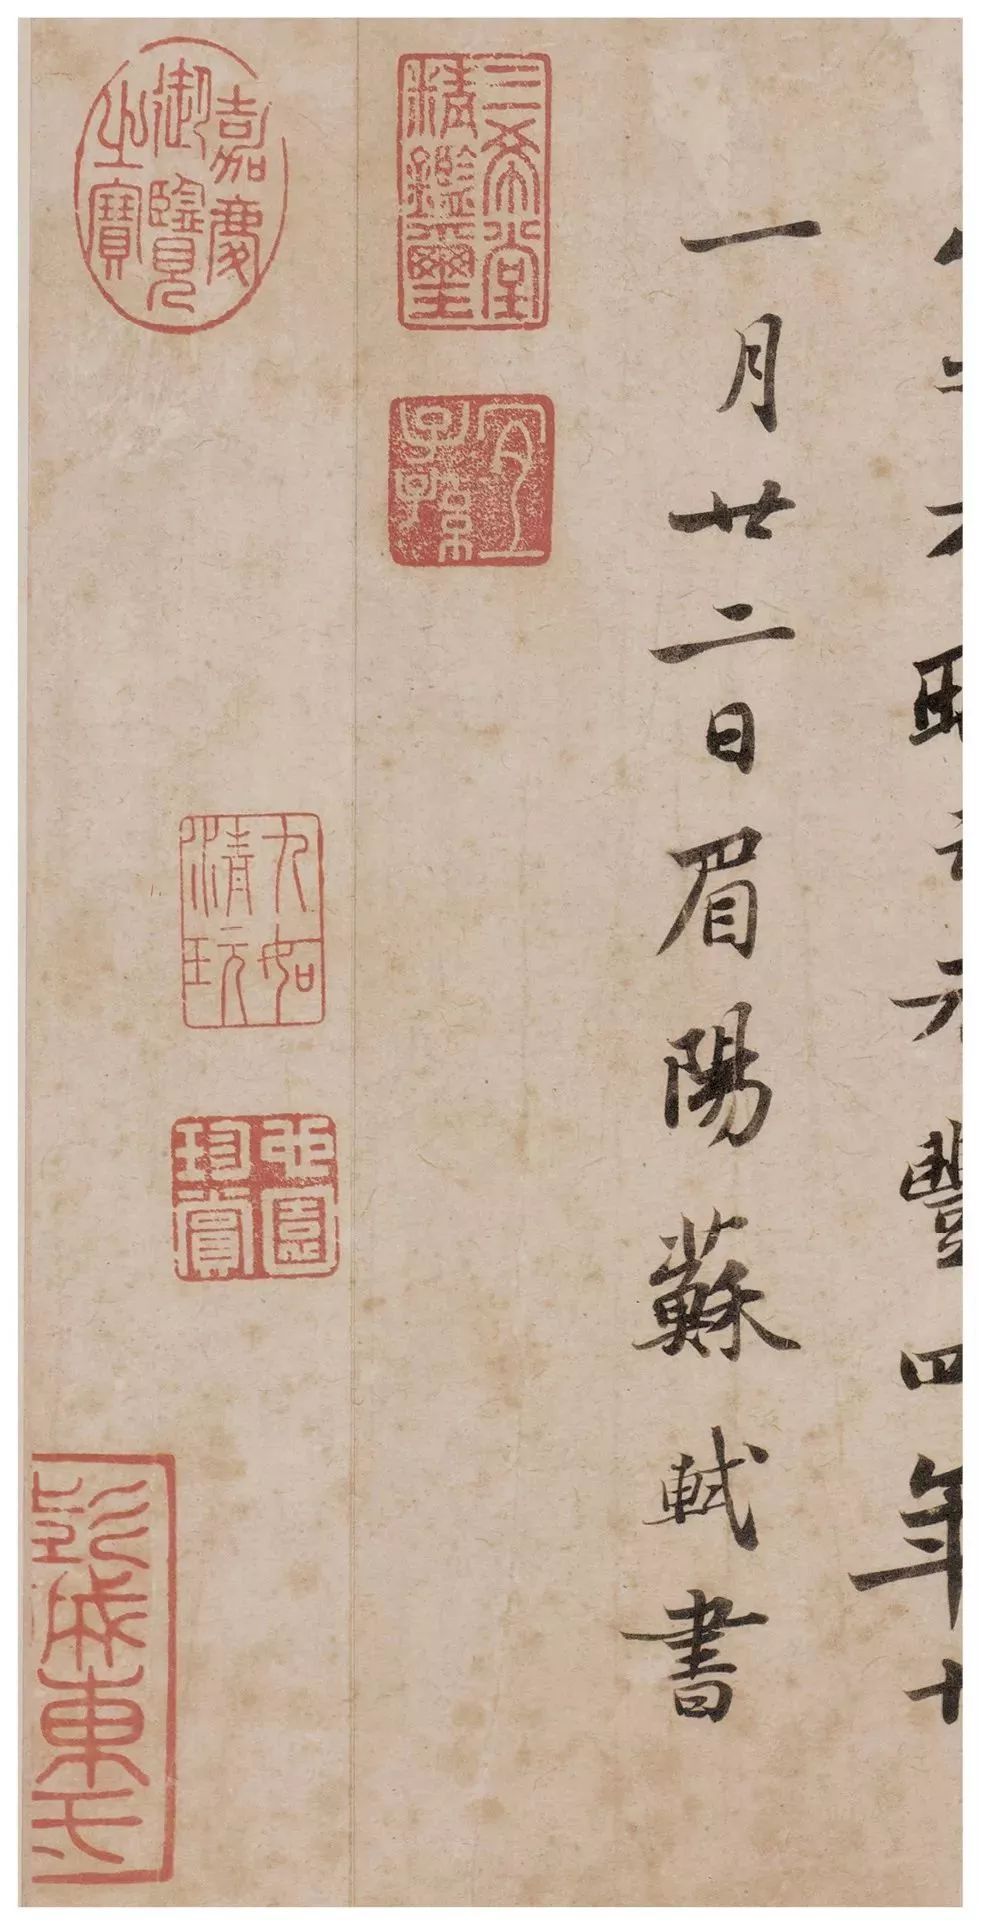 元豐四年十
一月廿二日眉陽蘇軾書
三希堂
精鑑璽
宜
子孫
嘉慶
御覽
之寶
九如
清玩
珍賞